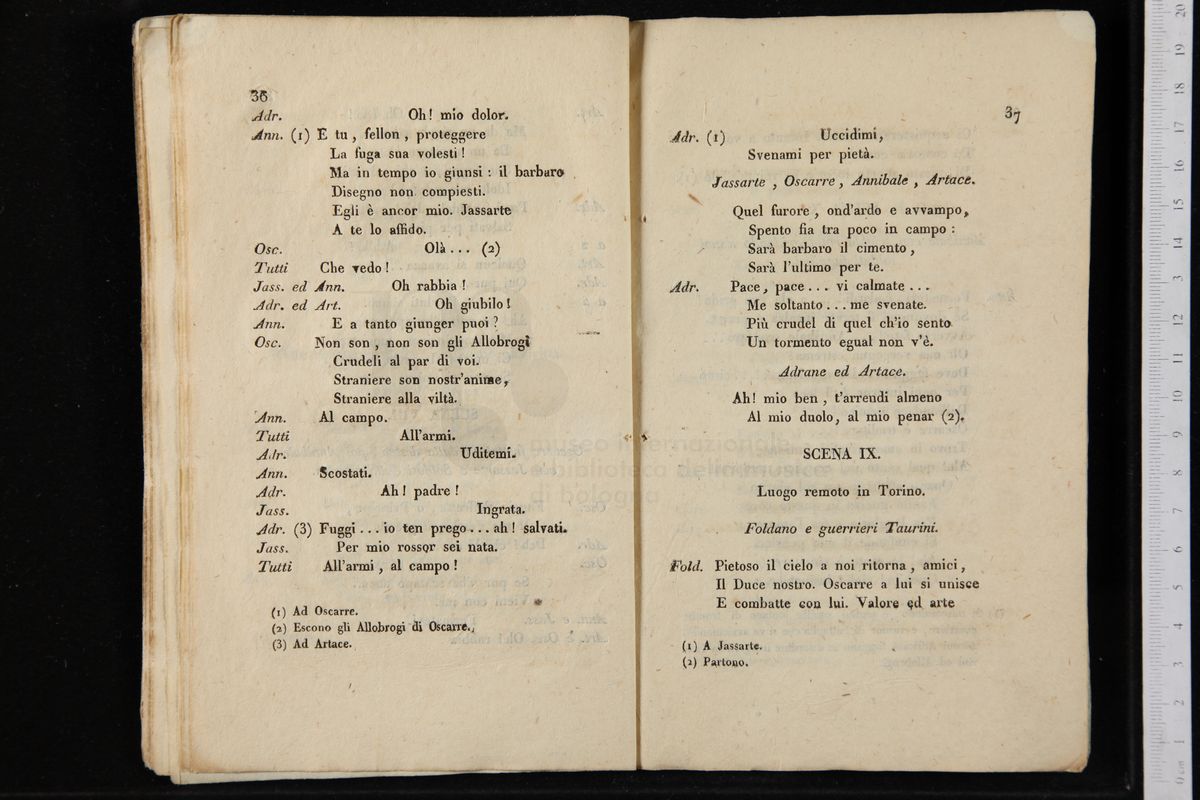 36
Adr. Oh! mio dolor.
Ann. (1) E tu, fellon, proteggere
La fuga sua volesti!
Ma in tempo io giunsi: il barbaro
Disegno non compiesti.
Egli è ancor mio. Jassarte
A te lo affido.
Osc. Olà... (2)
Tutti Che vedo!
Jass. ed Ann. Oh rabbia!
Adr. ed Art. Oh giubilo!
Ann. E a tanto giunger puoi?
Osc. Non son, non son gli Allobrogi
Crudeli al par di voi.
Straniere son nostr'anime,
Straniere alla viltà.
Ann. Al campo.
Tutti All'armi.
Adr. Uditemi.
Ann. Scostati.
Adr. Ah! padre!
Jass. Ingrata.
Adr. (3) Fuggi... io ten prego... ah! salvati.
Jass. Per mio rossor sei nata.
Tutti All'armi, al campo!
(1) Ad Oscarre.
(2) Escono gli Allobrogi di Oscarre.
(3) Ad Artace.
37
Adr. (1) Uccidimi,
Svenami per pietà.
Jassarte, Oscarre, Annibale, Artace.
Quel furore, ond'ardo e avvampo,
Spento fia tra poco in campo:
Sarà barbaro il cimento,
Sarà l'ultimo per te.
Adr. Pace, pace... vi calmate...
Me soltanto... me svenate.
Più crudel di quel ch'io sento
Un tormento egual non v'è.
Adrane ed Artace.
Ah! mio ben, t'arrendi almeno
Al mio duolo, al mio penar (2).
SCENA IX.
Luogo remoto in Torino.
Foldano e guerrieri Taurini.
Fold. Pietoso il cielo a noi ritorna, amici,
Il Duce nostro. Oscarre a lui si unisce
E combatte con lui. Valore ed arte
(1) A Jassarte.
(2) Partono.
museo internazionale
e biblioteca della musica
di bologna
0 cm 1 2 3 4 5 6 7 8 9 10 11 12 13 14 15 16 17 18 19 20